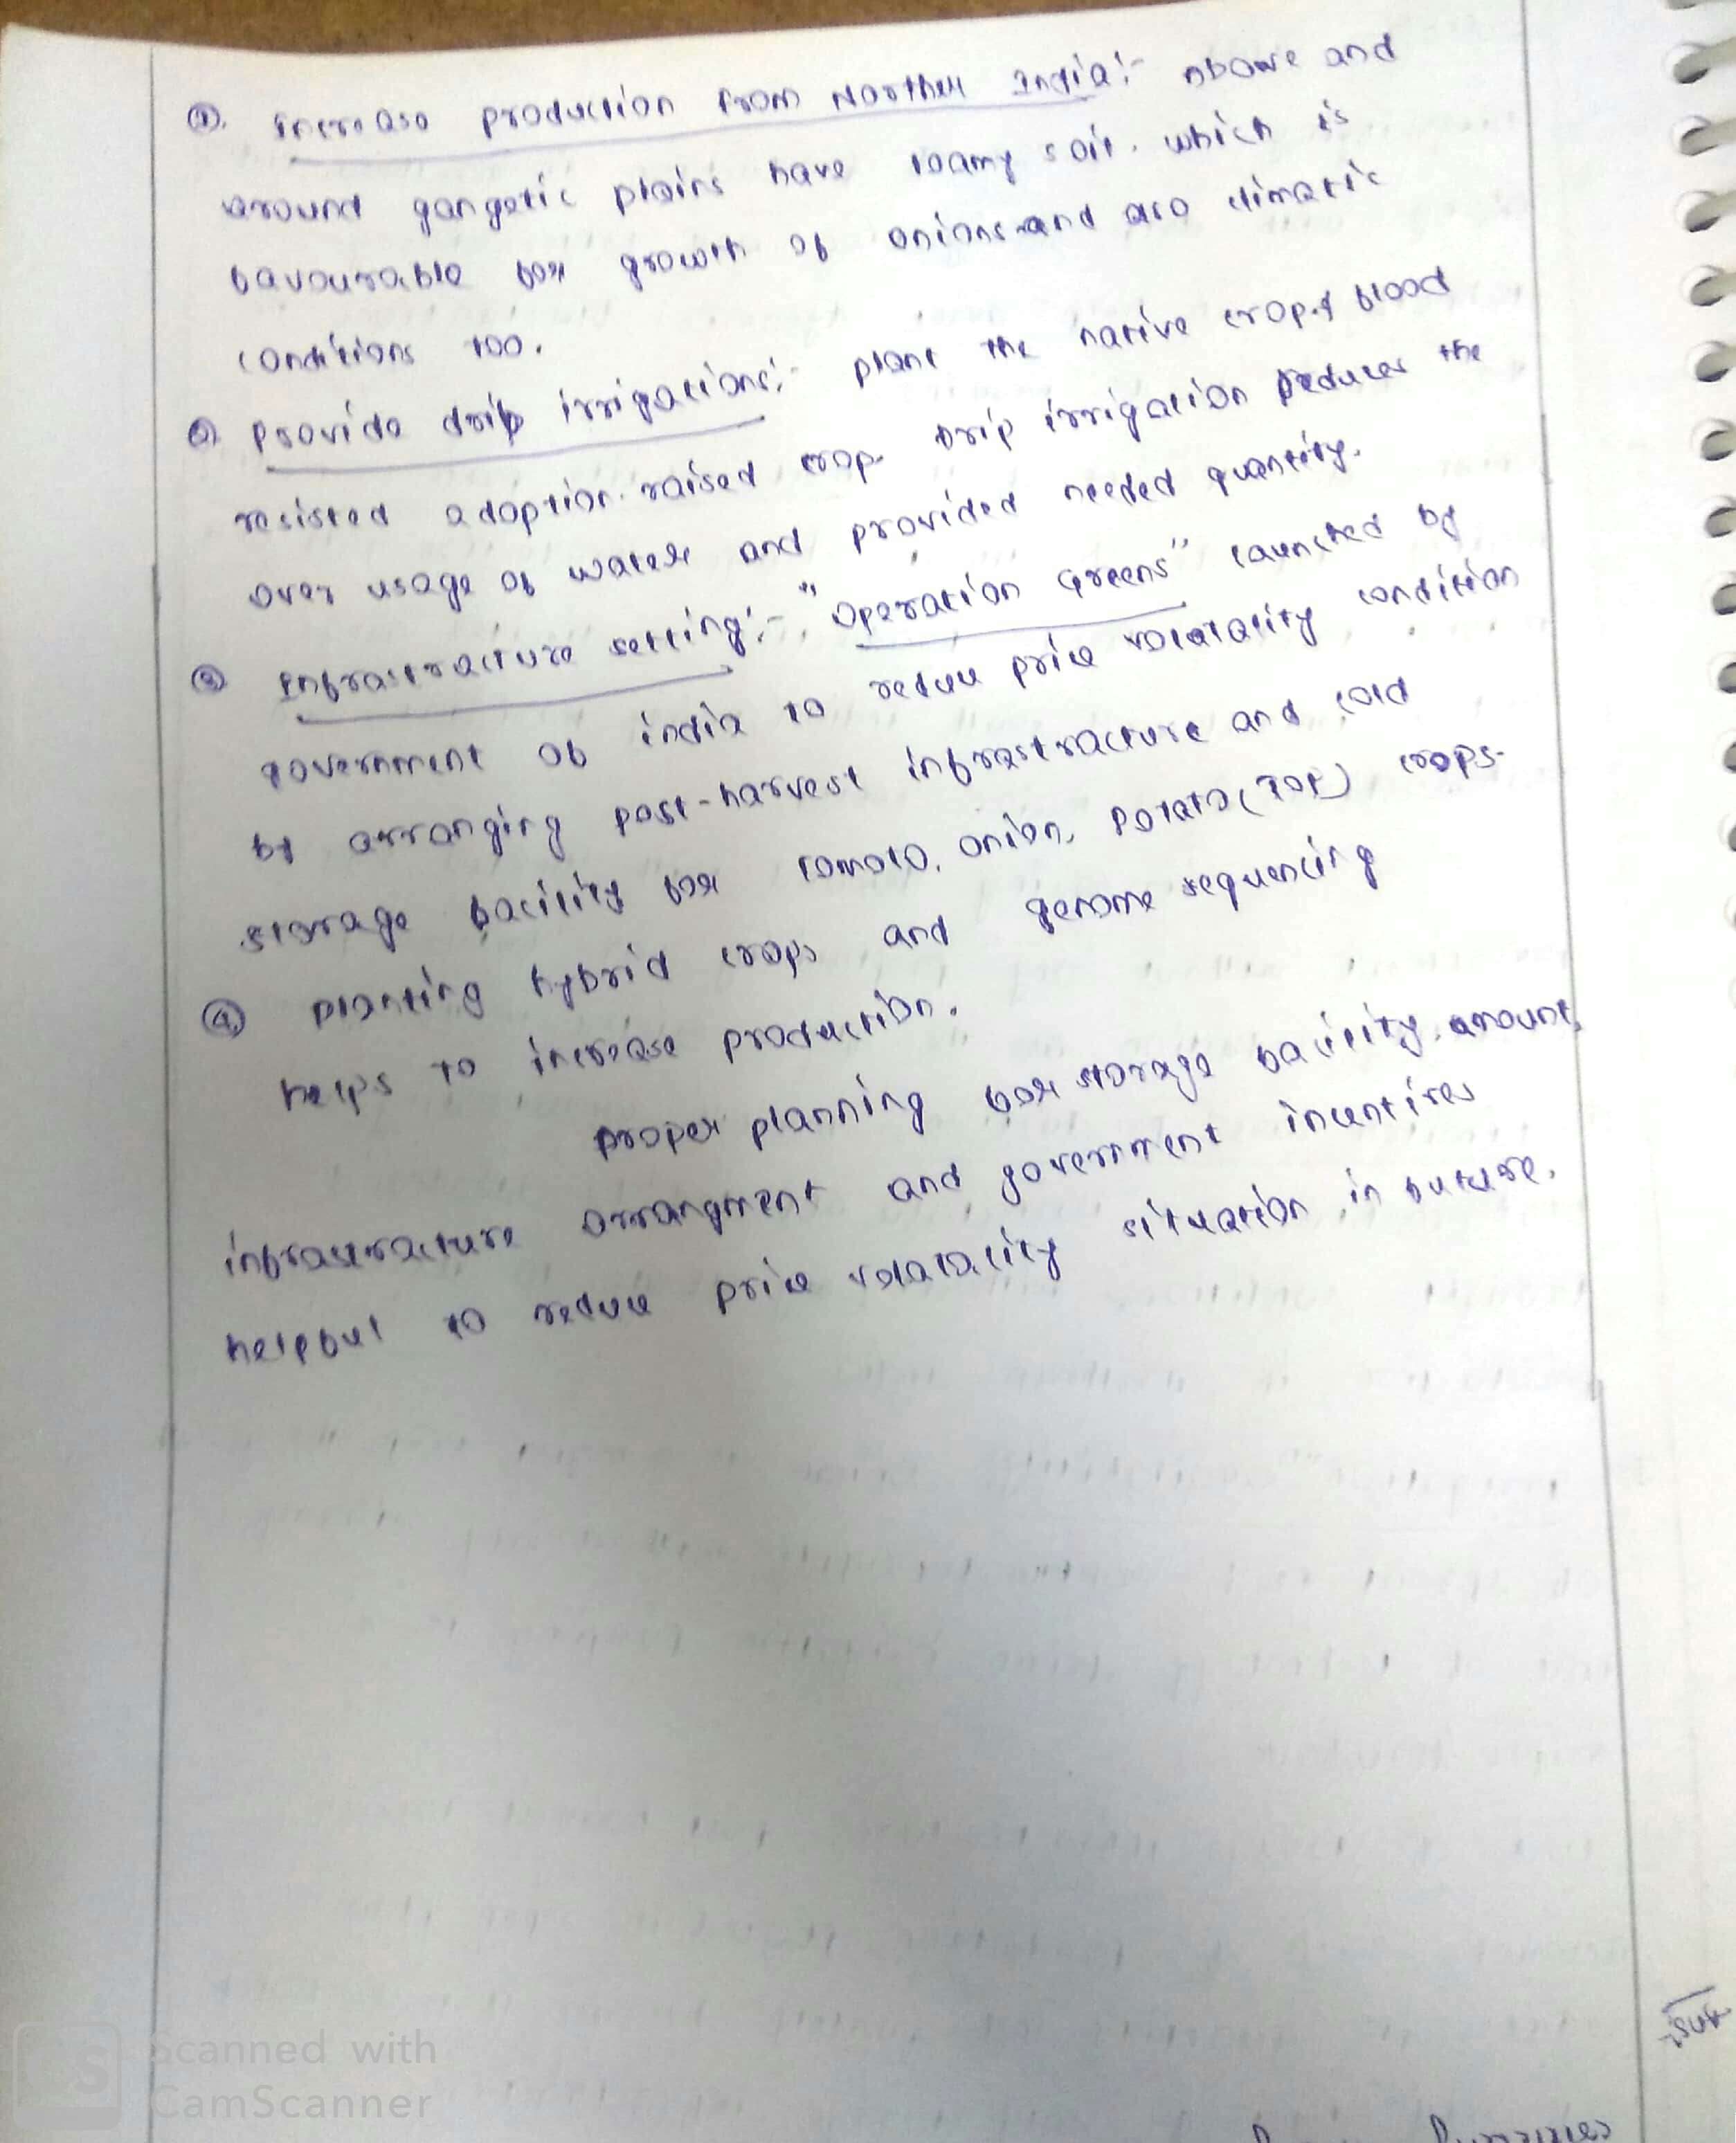 ①. Increase production from Northern India:- Above and
around gangetic plains have loamy soil. which is
favourable for growth of onions and also climatic
conditions too.
② Provide drip irrigations:- plant the native crop & flood
resisted adoption raised crop. Drip irrigation reduces the
over usage of water and provided needed quantity.
③ Infrastracture setting:- "Operation Greens" launched by
government of india to reduce price volatality condition
by arranging post-harvest infrastracture and cold
storage facility for tomoto, onion, Potato (TOP) crops.
④ Planting hybrid crops and genome sequencing
helps to increase production.
Proper planning for storage facility, amount,
infrastracture arrangment and government incentives
helpful to reduce price volatality situation in future.
Scanned with
CamScanner